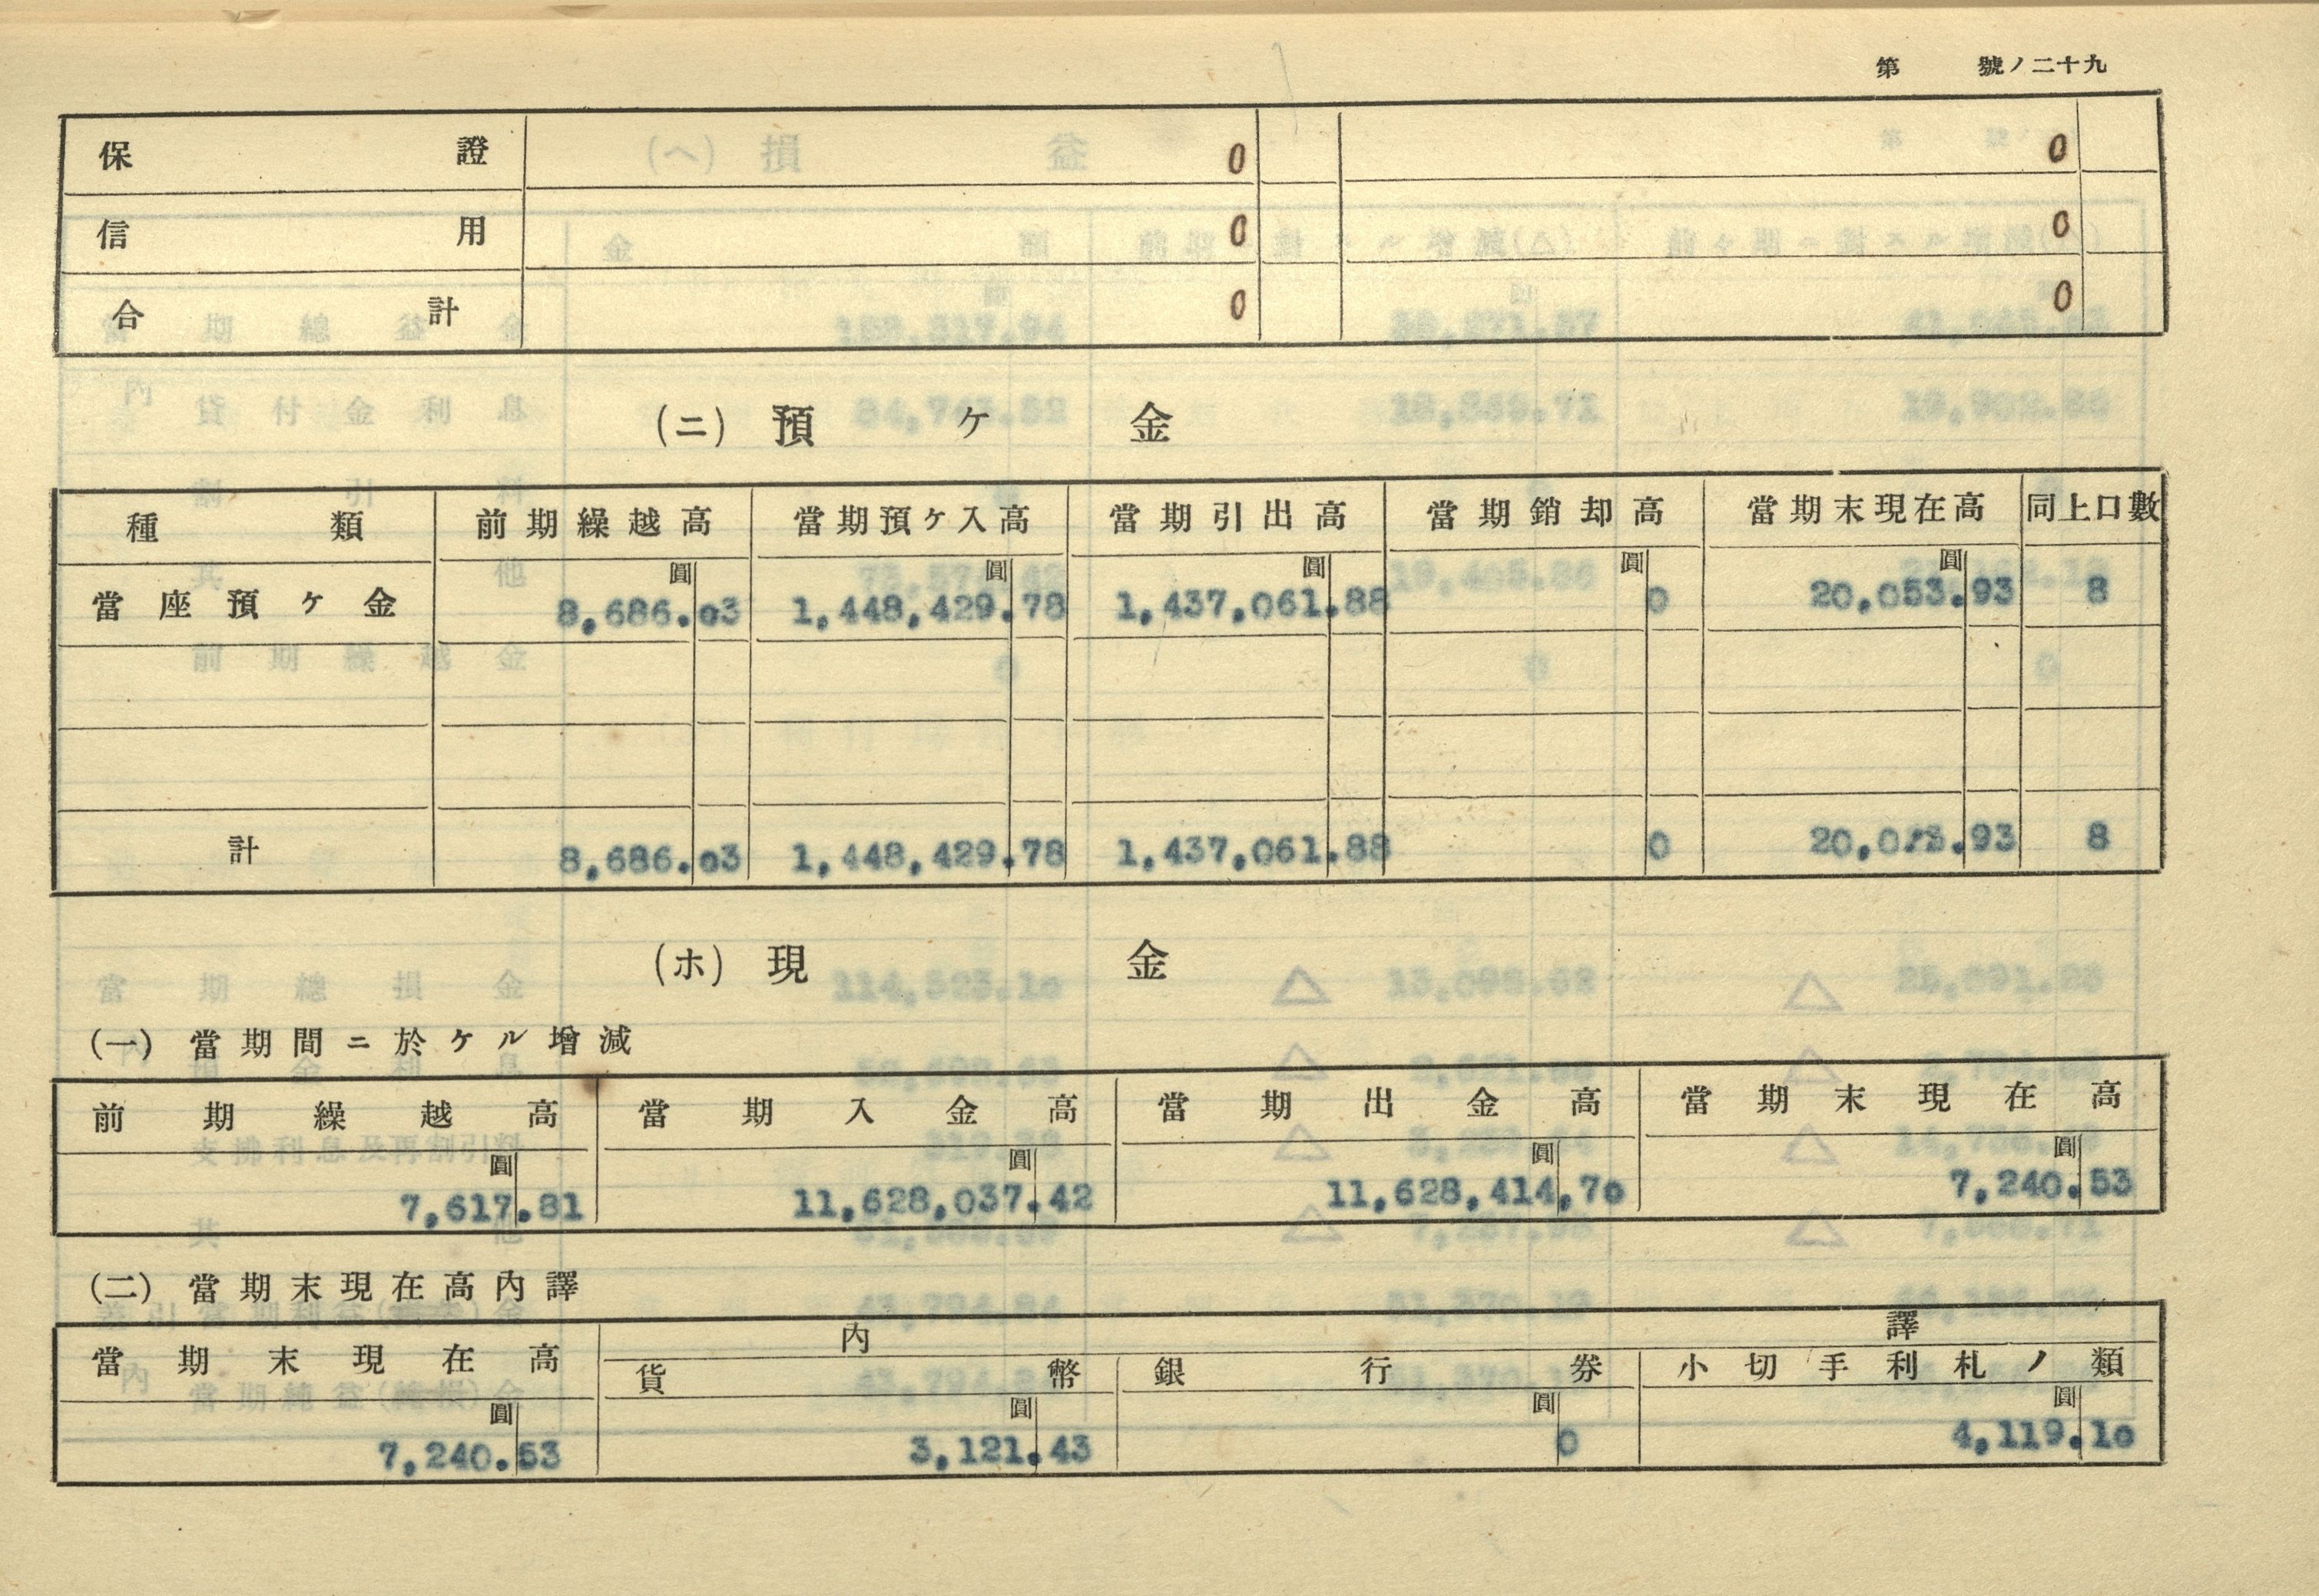 第 號ノ二十九
保證 0 0
信用 0 0
合計 0 0
(ニ) 預ケ金
種類 前期繰越高 當期預ケ入高 當期引出高 當期銷却高 當期末現在高 同上口數
圓 圓 圓 圓 圓
當座預ケ金 8,686.03 1,448,429.78 1,437,061.88 0 20,053.93 8
計 8,686.03 1,448,429.78 1,437,061.88 0 20,053.93 8
(ホ) 現金
(一) 當期間ニ於ケル增減
前期繰越高 當期入金高 當期出金高 當期末現在高
圓 圓 圓 圓
7,617.81 11,628,037.42 11,628,414,70 7,240.53
(二) 當期末現在高內譯
當期末現在高 內譯
貨幣 銀行券 小切手利札ノ類
圓 圓 圓 圓
7,240.53 3,121.43 0 4,119.10